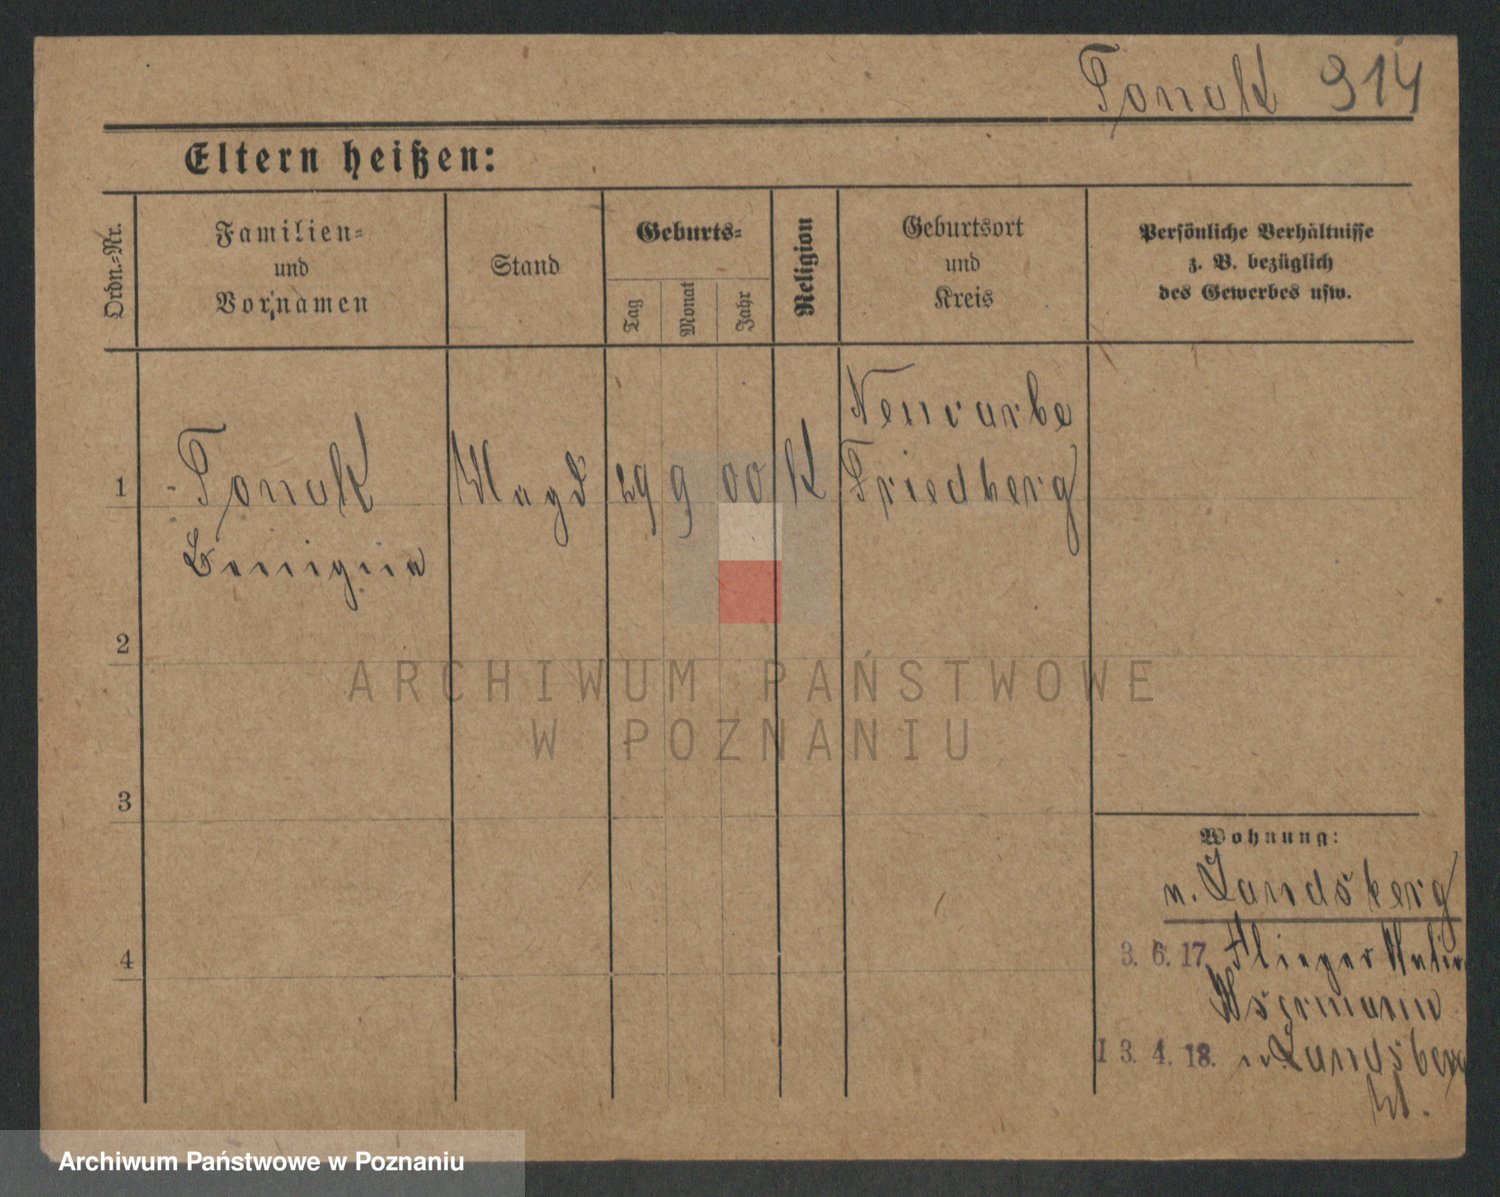 Tonak 914
Eltern heißen:
Ordn.-Nr.
Familien-
und
Vornamen
Stand
Geburts-
Tag
Monat
Jahr
Religion
Geburtsort
und
Kreis
Persönliche Verhältnisse
z. B. bezüglich
des Gewerbes usw.
1
Tonak
Magd
29
9
00
K
Friedberg
Benigna
2
3
4
Wohnung:
n. Landsberg
3. 6. 17. Flieger
13. 4. 18. n Landsberg
ARCHIWUM PAŃSTWOWE
W POZNANIU
Archiwum Państwowe w Poznaniu